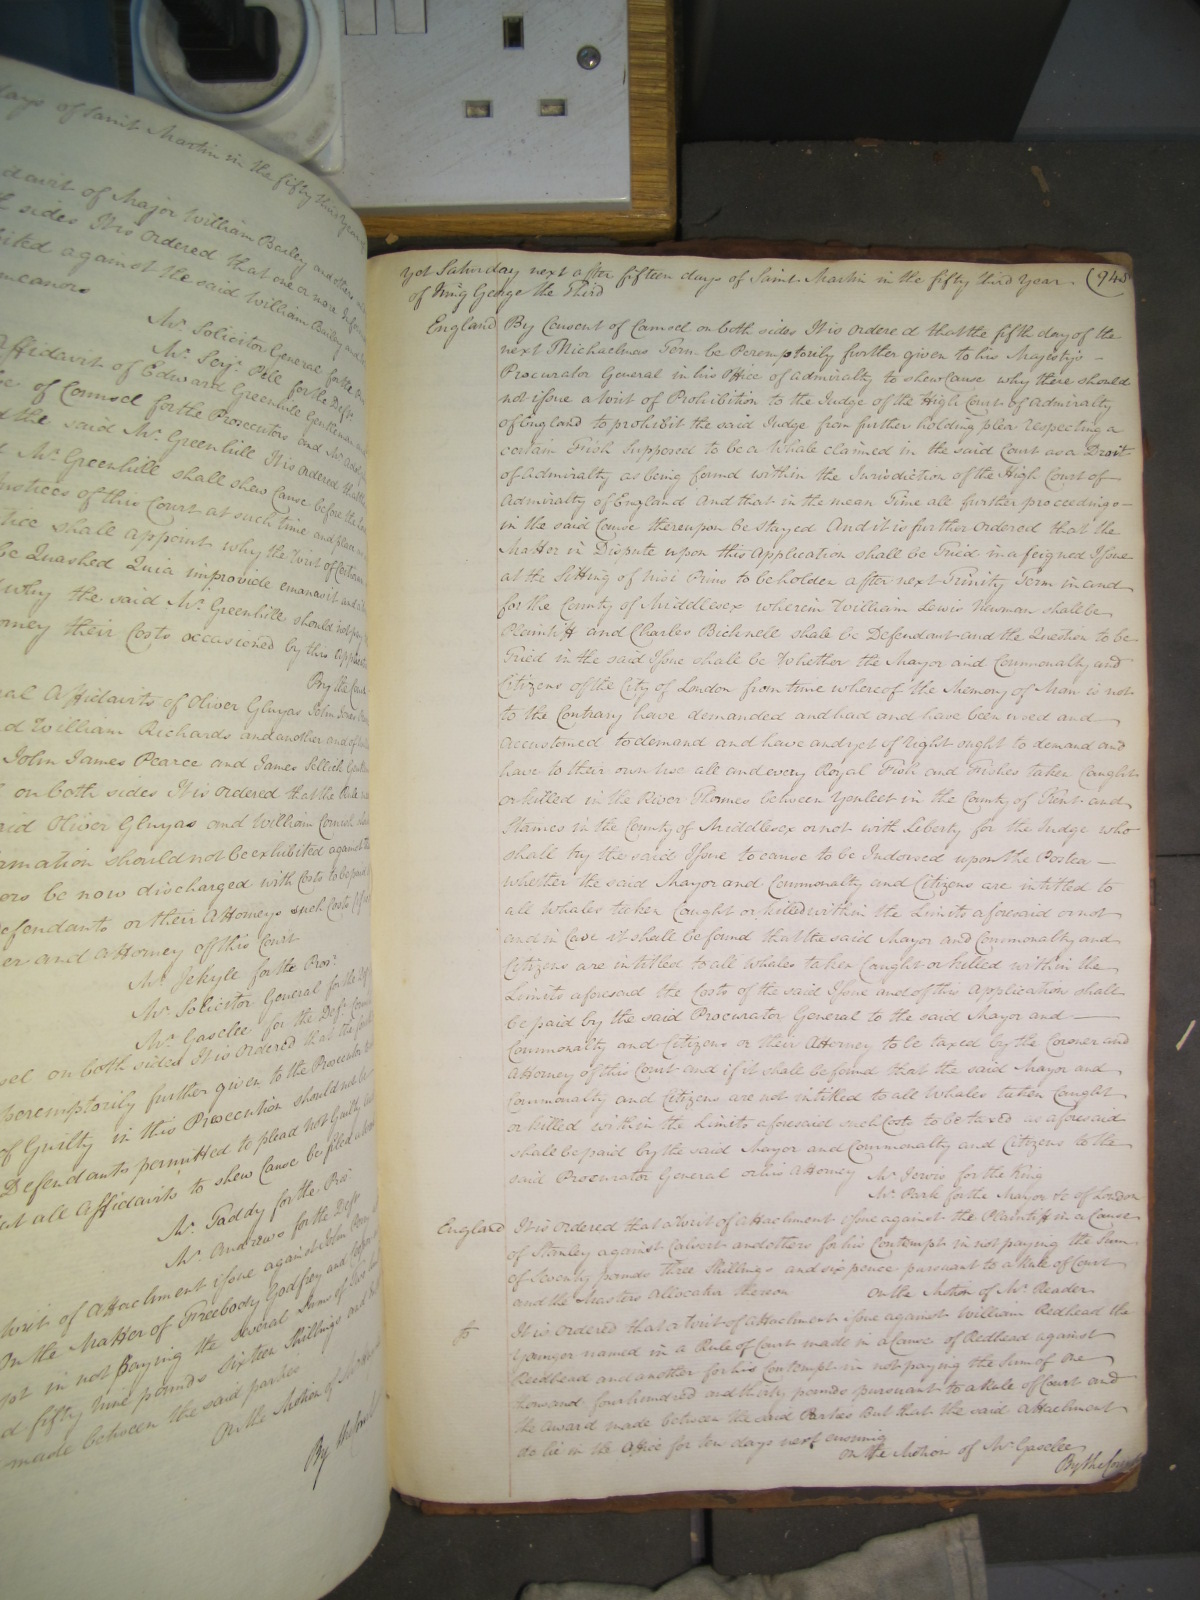 days of Saint Martin in the fifty third year
davit of Major William Bailey and others
sides It is ordered that one or more
ited against the said William Bailey and
meanors
Mr. Solicitor General for the
Mr. Serjt. Pell for the Deft.
Affidavit of Edward Greenhill Gentleman
of Counsel for the Prosecutors and Mr.
d the said Mr. Greenhill It is ordered that
Mr. Greenhill shall shew Cause before the
Justices of this Court at such time and place
tice shall appoint why the Writ of Certiorari
be Quashed Quia improvide emanavit and
why the said Mr. Greenhill should not pay
orney their Costs occasioned by this application
By the Court
al Affidavits of Oliver Gluyas John
d William Richards and another and of
John James Pearce and James Sellick
on both sides It is ordered that the Rule
aid Oliver Gluyas and William
rmation should not be exhibited against
ors be now discharged with Costs to be paid
efendants or their Attorneys such Costs
er and Attorney of this Court
Mr. Jekyll for the Pros.
Mr. Solicitor General for the
Mr. Gaselee for the Deft.
sel on both sides It is ordered that the
Peremptorily further given to the Prosecutor
of Guilty in this Prosecution should not be
Defendants permitted to plead not Guilty
all Affidavits to shew Cause be filed
Mr. Taddy for the Pros.
Mr. Andrews for the Defts.
Writ of Attachment issue against John
On the Matter of Freebody Godfrey and
in not Paying the several Sums of
d fifty nine pounds sixteen Shillings and
made between the said parties
On the Motion of Mr.
By the Court
Yet Saturday next after fifteen days of Saint Martin in the fifty third Year (948
of King George the Third
England By Consent of Counsel on both sides It is ordered that the fifth day of the
next Michaelmas Term be Peremptorily further given to his Majestys
Procurator General in his Office of Admiralty to shew Cause why there should
not issue a Writ of Prohibition to the Judge of the High Court of Admiralty
of England to prohibit the said Judge from further holding plea respecting a
certain Fish Supposed to be a Whale claimed in the said Court as a Droit
of Admiralty as being found within the Jurisdiction of the High Court of
Admiralty of England And that in the mean Time all further proceedings
in the said Cause thereupon be stayed And it is further ordered that the
Matter in Dispute upon this Application shall be Tried in a feigned Issue
at the Sitting of Nisi Prius to be holden after next Trinity Term in and
for the County of Middlesex wherein William Lewis Newman shall be
Plaintiff and Charles Bicknell shall be Defendant and the Question to be
Tried in the said Issue shall be Whether the Mayor and Commonalty and
Citizens of the City of London from time whereof the Memory of Man is not
to the Contrary have demanded and had and have been used and
accustomed to demand and have and yet of Right ought to demand and
have to their own use all and every Royal Fish and Fishes taken Caught
or killed in the River Thames between Yenleet in the County of Kent and
Staines in the County of Middlesex or not with liberty for the Judge who
shall try the said Issue to cause to be Indorsed upon the Postea
whether the said Mayor and Commonalty and Citizens are intitled to
all Whales taken Caught or killed within the Limits aforesaid or not
and in Case it shall be found that the said Mayor and Commonalty and
Citizens are intitled to all Whales taken Caught or killed within the
Limits aforesaid the Costs of the said Issue and of this Application shall
be paid by the said Procurator General to the said Mayor and
Commonalty and Citizens or their Attorney to be taxed by the Coroner and
Attorney of this Court and if it shall be found that the said Mayor and
Commonalty and Citizens are not intitled to all Whales taken Caught
or killed within the Limits aforesaid such Costs to be taxed as aforesaid
shall be paid by the said Mayor and Commonalty and Citizens to the
said Procurator General or his Attorney Mr. Jervis for the King
Mr. Park for the Mayor &c of London
England It is ordered that a Writ of Attachment issue against the Plaintiff in a Cause
of Stanley against Calvert and others for his Contempt in not paying the Sum
of Seventy pounds three Shillings and six pence pursuant to a Rule of Court
and the Masters Allocatur thereon On the Motion of Mr. Reader
It is ordered that a Writ of Attachment issue against William Redhead the
Younger named in a Rule of Court made in a Cause of Redhead against
Redhead and another for his Contempt in not paying the Sum of One
thousand four hundred and thirty pounds pursuant to a Rule of Court and
the Award made between the said Parties But that the said Attachment
do lie in the Office for ten days next ensuing
On the Motion of Mr. Gaselee
By the Court